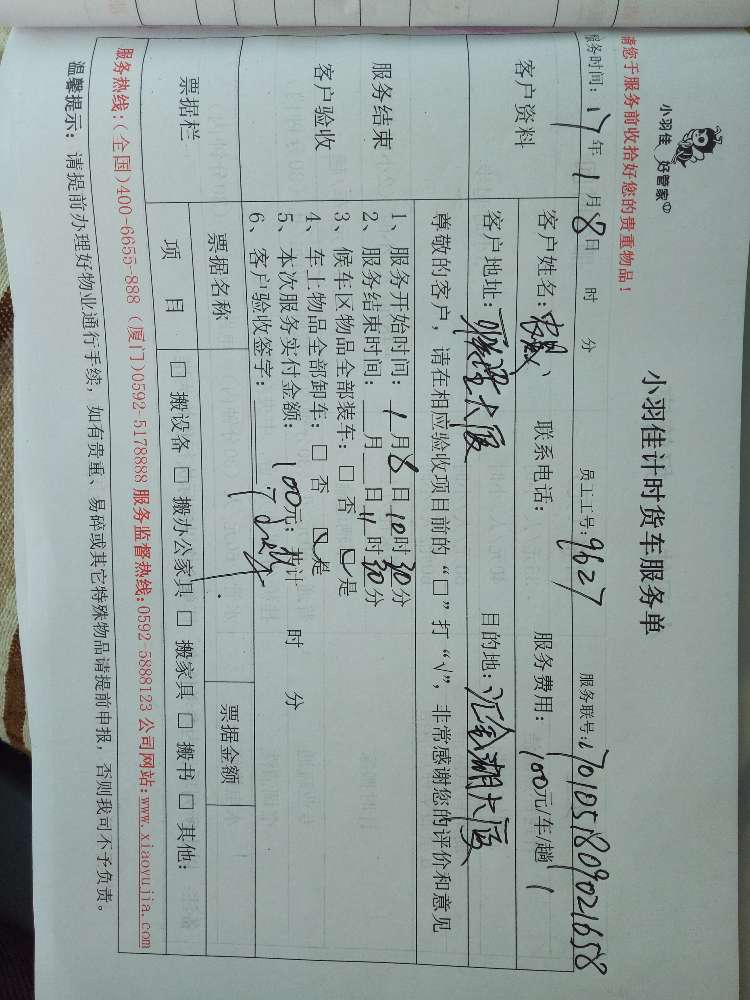 小羽佳 好管家
小羽佳计时货车服务单
请您于服务前收拾好您的贵重物品！
服务时间：17年1月8日 时 分 员工工号：9627 服务联号：170105180902 1658
客户资料
客户姓名： 联系电话： 服务费用：100元/车/趟
客户地址： 大厦 目的地：汇金湖大厦
尊敬的客户，请在相应验收项目前的“□”打“√”，非常感谢您的评价和意见
服务结束
客户验收
1、服务开始时间：1月8日10时30分
2、服务结束时间：__月__日11时30分
3、候车区物品全部装车：□ 否 ☑是
4、车上物品全部卸车：□ 否 ☑是
5、本次服务实付金额：100元；共计 时 分
6、客户验收签字：
票据栏
票据名称 票据金额
项目 □ 搬设备 □ 搬办公家具 □ 搬家具 □ 搬书 □ 其他：
服务热线：(全国)400-6655-888 (厦门)0592-5178888 服务监督热线:0592-5888123 公司网站:www.xiaoyujia.com
温馨提示：请提前办理好物业通行手续，如有贵重、易碎或其它特殊物品请提前申报，否则我司不予负责。